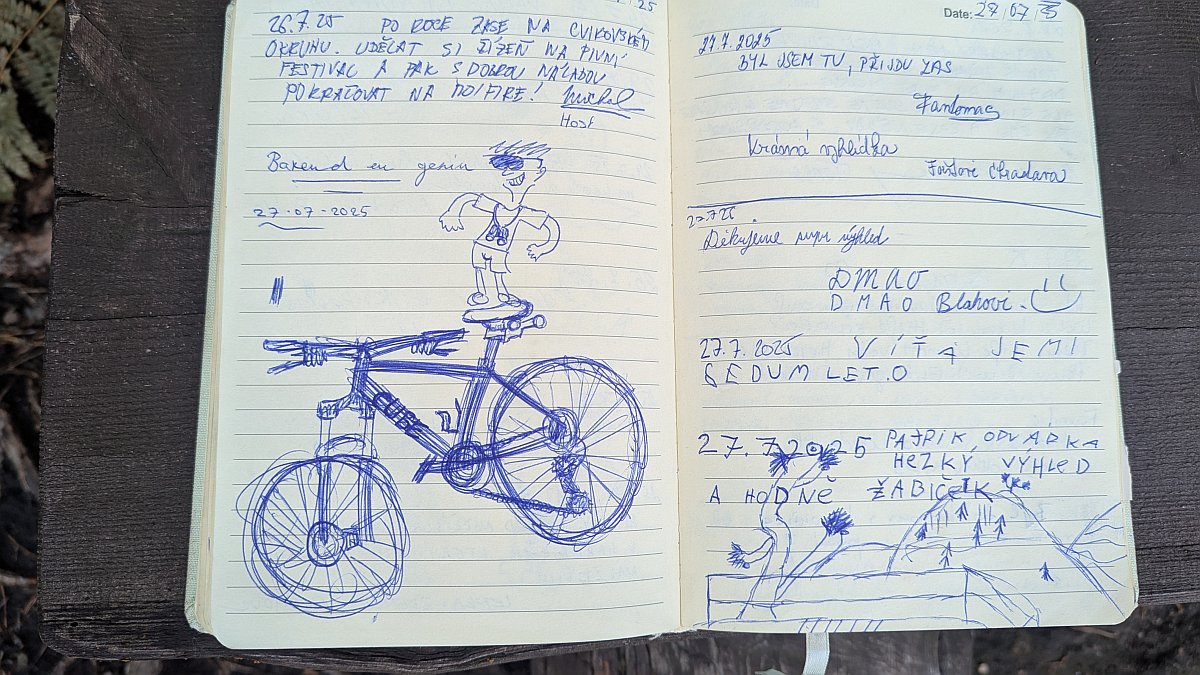 26.7.25 PO ROCE ZASE NA CVIKOVSKÉM
OKRUHU. UDĚLAT SI ŽÍZEŇ NA PIVNÍ
FESTIVAL A PAK S DOBROU NÁLADOU
POKRAČOVAT NA
Michal
27.07.2025
CUBE
Date: 27/07/25
27.7.2025
BYL JSEM TU, PŘIJDU ZAS
Fantomas
Krásná vyhlídka
27.7.25.
Děkujeme super výhled
DMAO
DMAO Blahovi.
27.7.2025 VÍŤA JEMI
SEDUM LET.O
27.7 2025 PATRIK ODVÁRKA
HEZKÝ VÝHLED
A HODNĚ ŽABIČEK